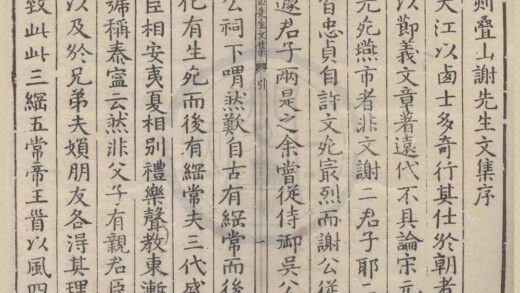 刻叠山謝先生文集序
大江以卤士多奇行其仕於朝者
以節義文章著遠代不具論宋元
死燕市者非文謝二君子耶二
皆忠貞自許文死最烈而謝公從
遽君子兩是之余嘗從侍御吳公
山先生文集 引 一
公祠下喟然歎自古有綱常而後
化有生死而後有綱常夫三代盛
臣相安夷夏相別禮樂聲教東漸
號稱泰寧云然非父子有親君臣
以及於兄弟夫婦朋友各得其理
致此此三綱五常帝王皆以風四